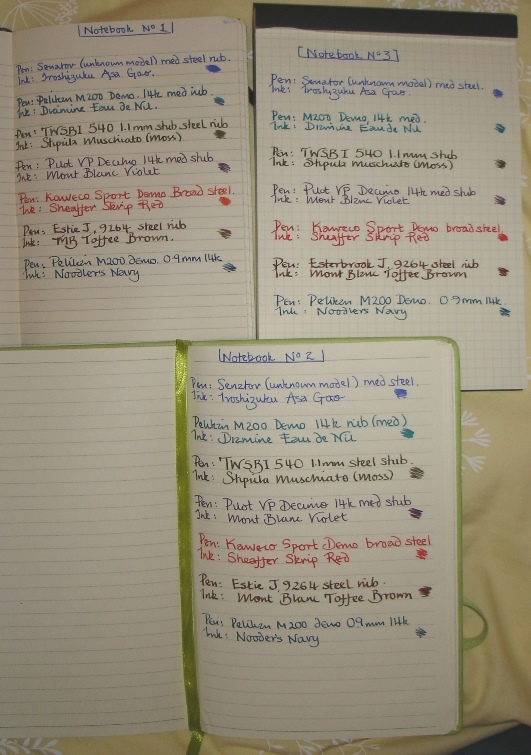 Notebook Nº 1
Pen: Senator (unknown model) med steel nib.
Ink: Iroshizuku Asa Gao.
Pen: Pelikan M200 Demo. 14k med nib.
Ink: Diamine Eau de Nil.
Pen: TWSBI 540 1.1mm stub steel nib
Ink: Stipula Muschiato (Moss)
Pen: Pilot VP Decimo 14k med stub
Ink: Mont Blanc Violet
Pen: Kaweco Sport Demo Broad steel.
Ink: Sheaffer Skrip Red
Pen: Estie J, 9264 steel nib
Ink: MB Toffee Brown.
Pen: Pelikan M200 demo. 0.9mm 14k
Ink: Noodlers Navy
Notebook Nº 3
Pen: Senator (unknown model) med steel.
Ink: Iroshizuku Asa Gao.
Pen: M200 Demo, 14k med.
Ink: Diamine Eau de Nil
Pen: TWSBI 540 1.1mm stub
Ink: Stipula Muschiato (Moss)
Pen: Pilot VP Decimo 14k med stub
Ink: Mont Blanc Violet
Pen: Kaweco Sport Demo broad steel.
Ink: Sheaffer Skrip Red
Pen: Esterbrook J, 9264 steel nib
Ink: Mont Blanc Toffee Brown
Pen: Pelikan M200 Demo. 0.9mm 14k.
Ink: Noodlers Navy
Notebook Nº 2
Pen: Senator (unknown model) med steel.
Ink: Iroshizuku Asa Gao
Pelikan M200 Demo 14k nib (med)
Ink: Diamine Eau de Nil
Pen: TWSBI 540 1.1mm stub.
Ink: Stipula Muschiato (Moss)
Pen: Pilot VP Decimo 14k med stub
Ink: Mont Blanc Violet
Pen: Kaweco Sport Demo broad steel
Ink: Sheaffer Skrip Red
Pen: Estie J, 9264 steel nib.
Ink: Mont Blanc Toffee Brown
Pen: Pelikan M200 demo 0.9mm 14k
Ink: Nooders Navy